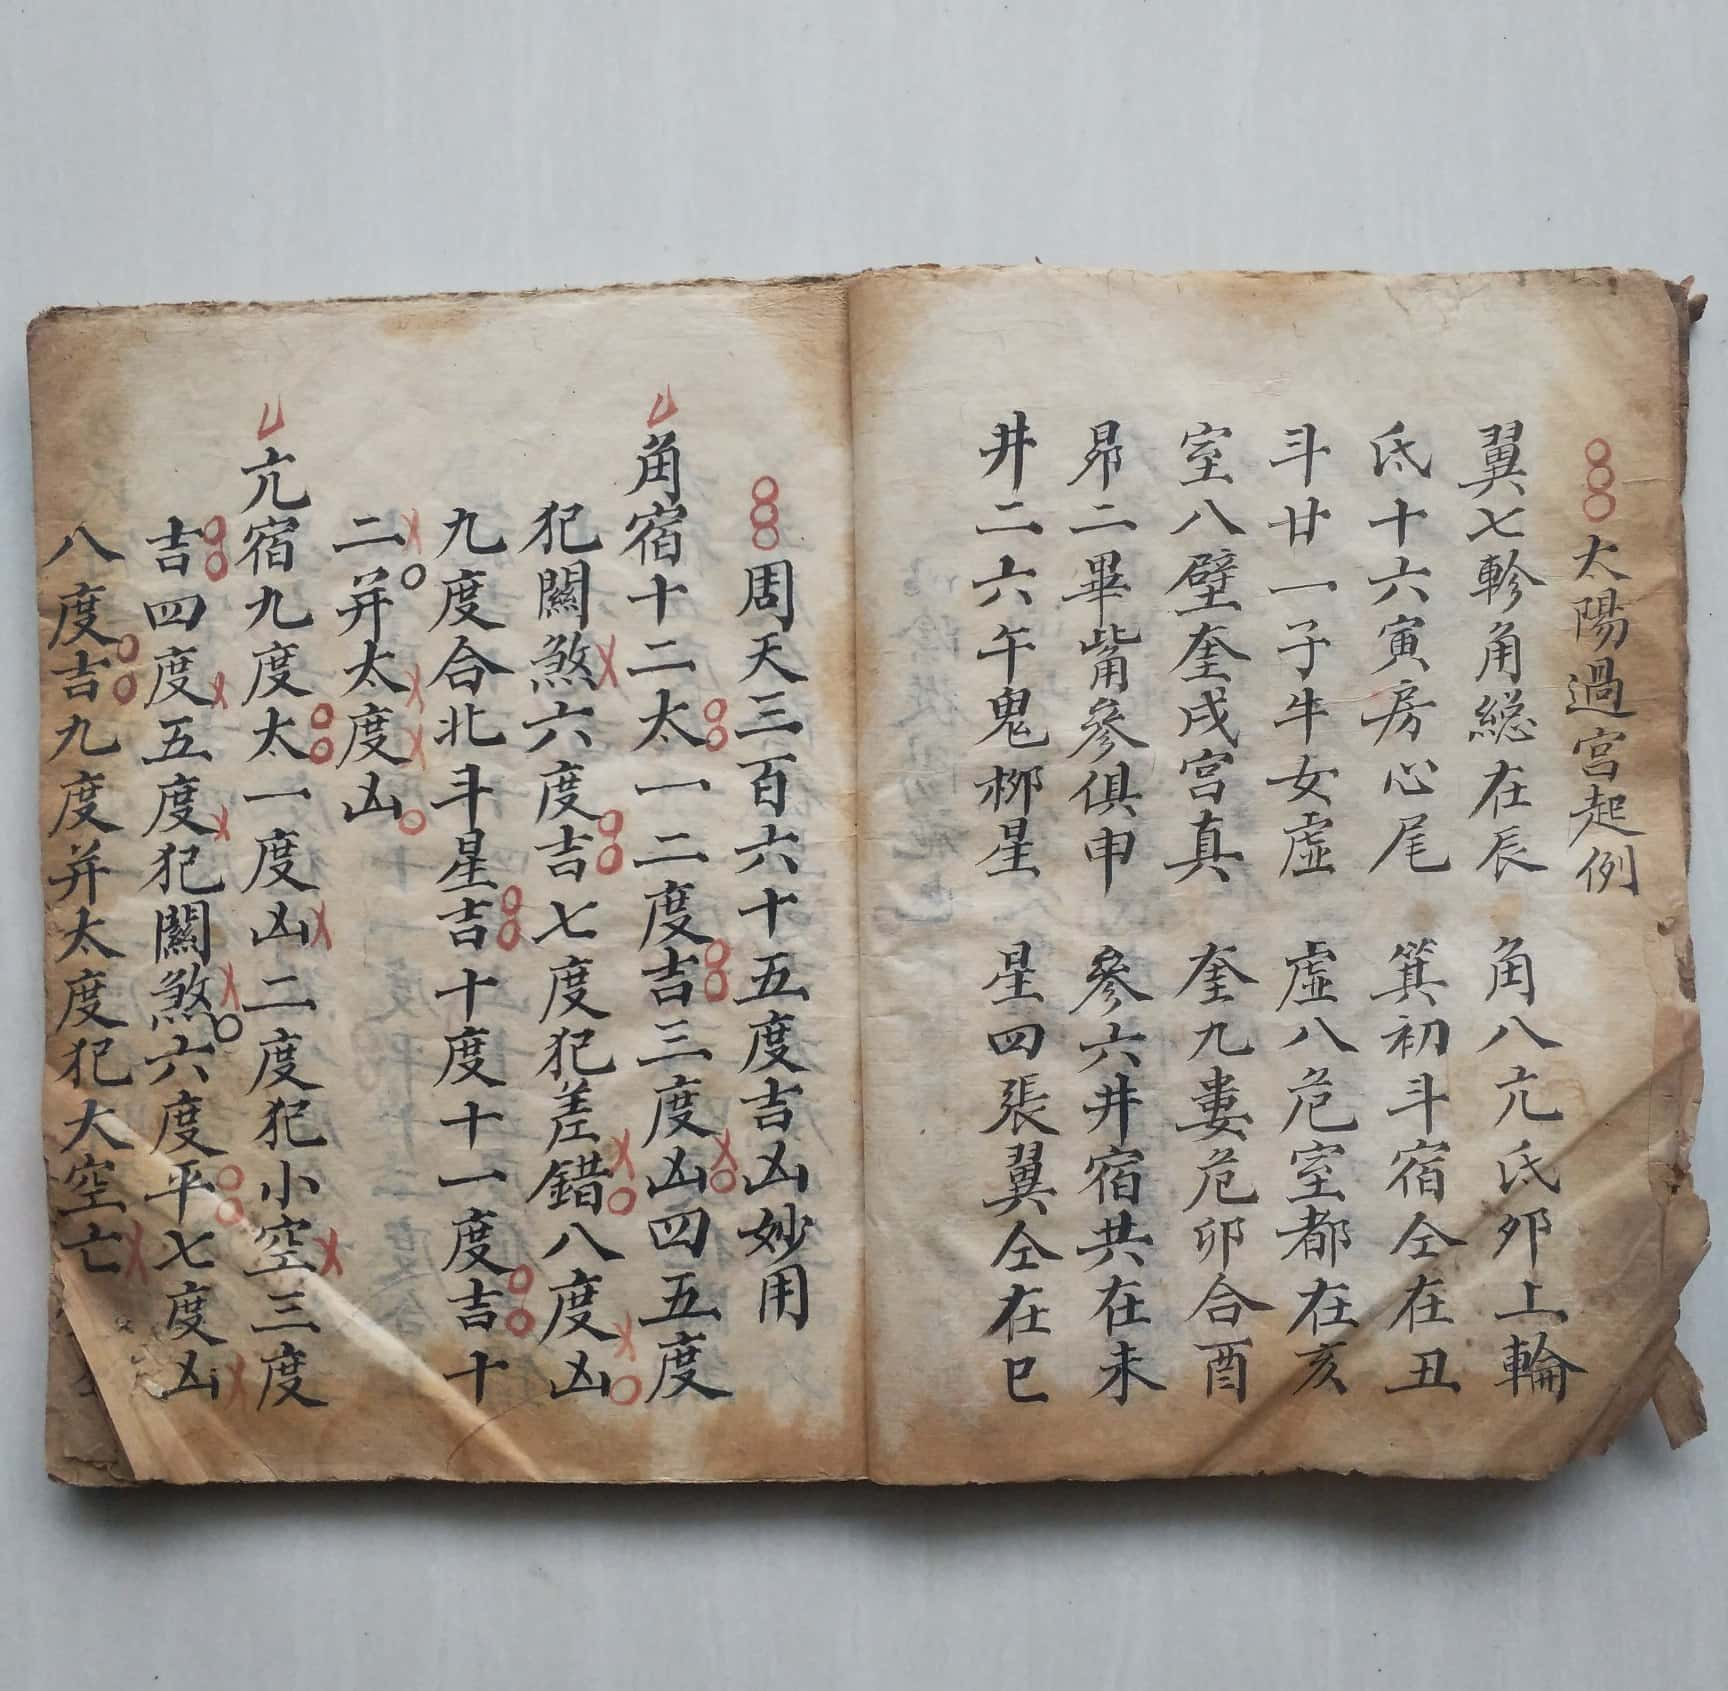 太陽過宮起例
翼七軫角緫在辰 角八亢氐夘上輪
氐十六寅房心尾 箕初斗宿仝在丑
斗廿一子牛女虛 虛八危室都在亥
室八壁奎戌宮真 奎九婁危卯合酉
昴二畢觜參俱申 參六井宿共在未
井二六午鬼柳星 星四張翼仝在巳
周天三百六十五度吉凶妙用
角宿十二太一二度吉三度凶四五度
犯關煞六度吉七度犯差錯八度凶
九度合北斗星吉十度十一度吉十
二并太度凶
亢宿九度太一度凶二度犯小空三度
吉四度五度犯關煞六度平七度凶
八度吉九度并太度犯大空亡